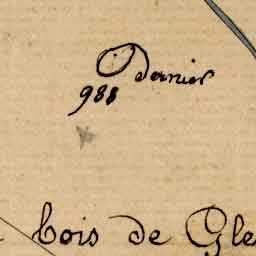 O dernier
988
bois de Gle